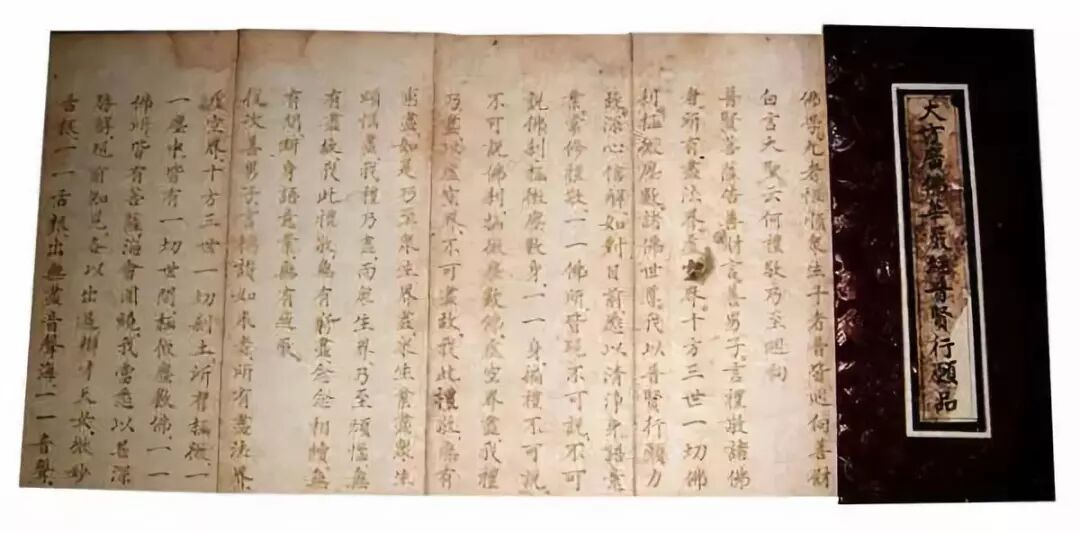 大方廣佛華嚴經普賢行願品
佛學九者恆順眾生十者普皆迴向善財
白言大聖云何禮敬乃至迴向
普賢菩薩告善財言善男子言禮敬諸佛
者所有盡法界虛空界十方三世一切佛
剎極微塵數諸佛世尊我以普賢行願力
故深心信解如對目前悉以清淨身語意
業常修禮敬一一佛所皆現不可說不可
說佛剎極微塵數身一一身遍禮不可說
不可說佛剎極微塵數佛虛空界盡我禮
乃盡以虛空界不可盡故我此禮敬無有
窮盡如是乃至眾生界盡眾生業盡眾生
煩惱盡我禮乃盡而眾生界乃至煩惱無
有盡故我此禮敬無有窮盡念念相續無
有間斷身語意業無有疲厭
復次善男子言稱讚如來者所有盡法界
虛空界十方三世一切剎土所有極微一
一塵中皆有一切世間極微塵數佛一一
佛所皆有菩薩海會圍繞我當悉以甚深
勝解現前知見各以出過辯才天女微妙
舌根一一舌根出無盡音聲海一一音聲